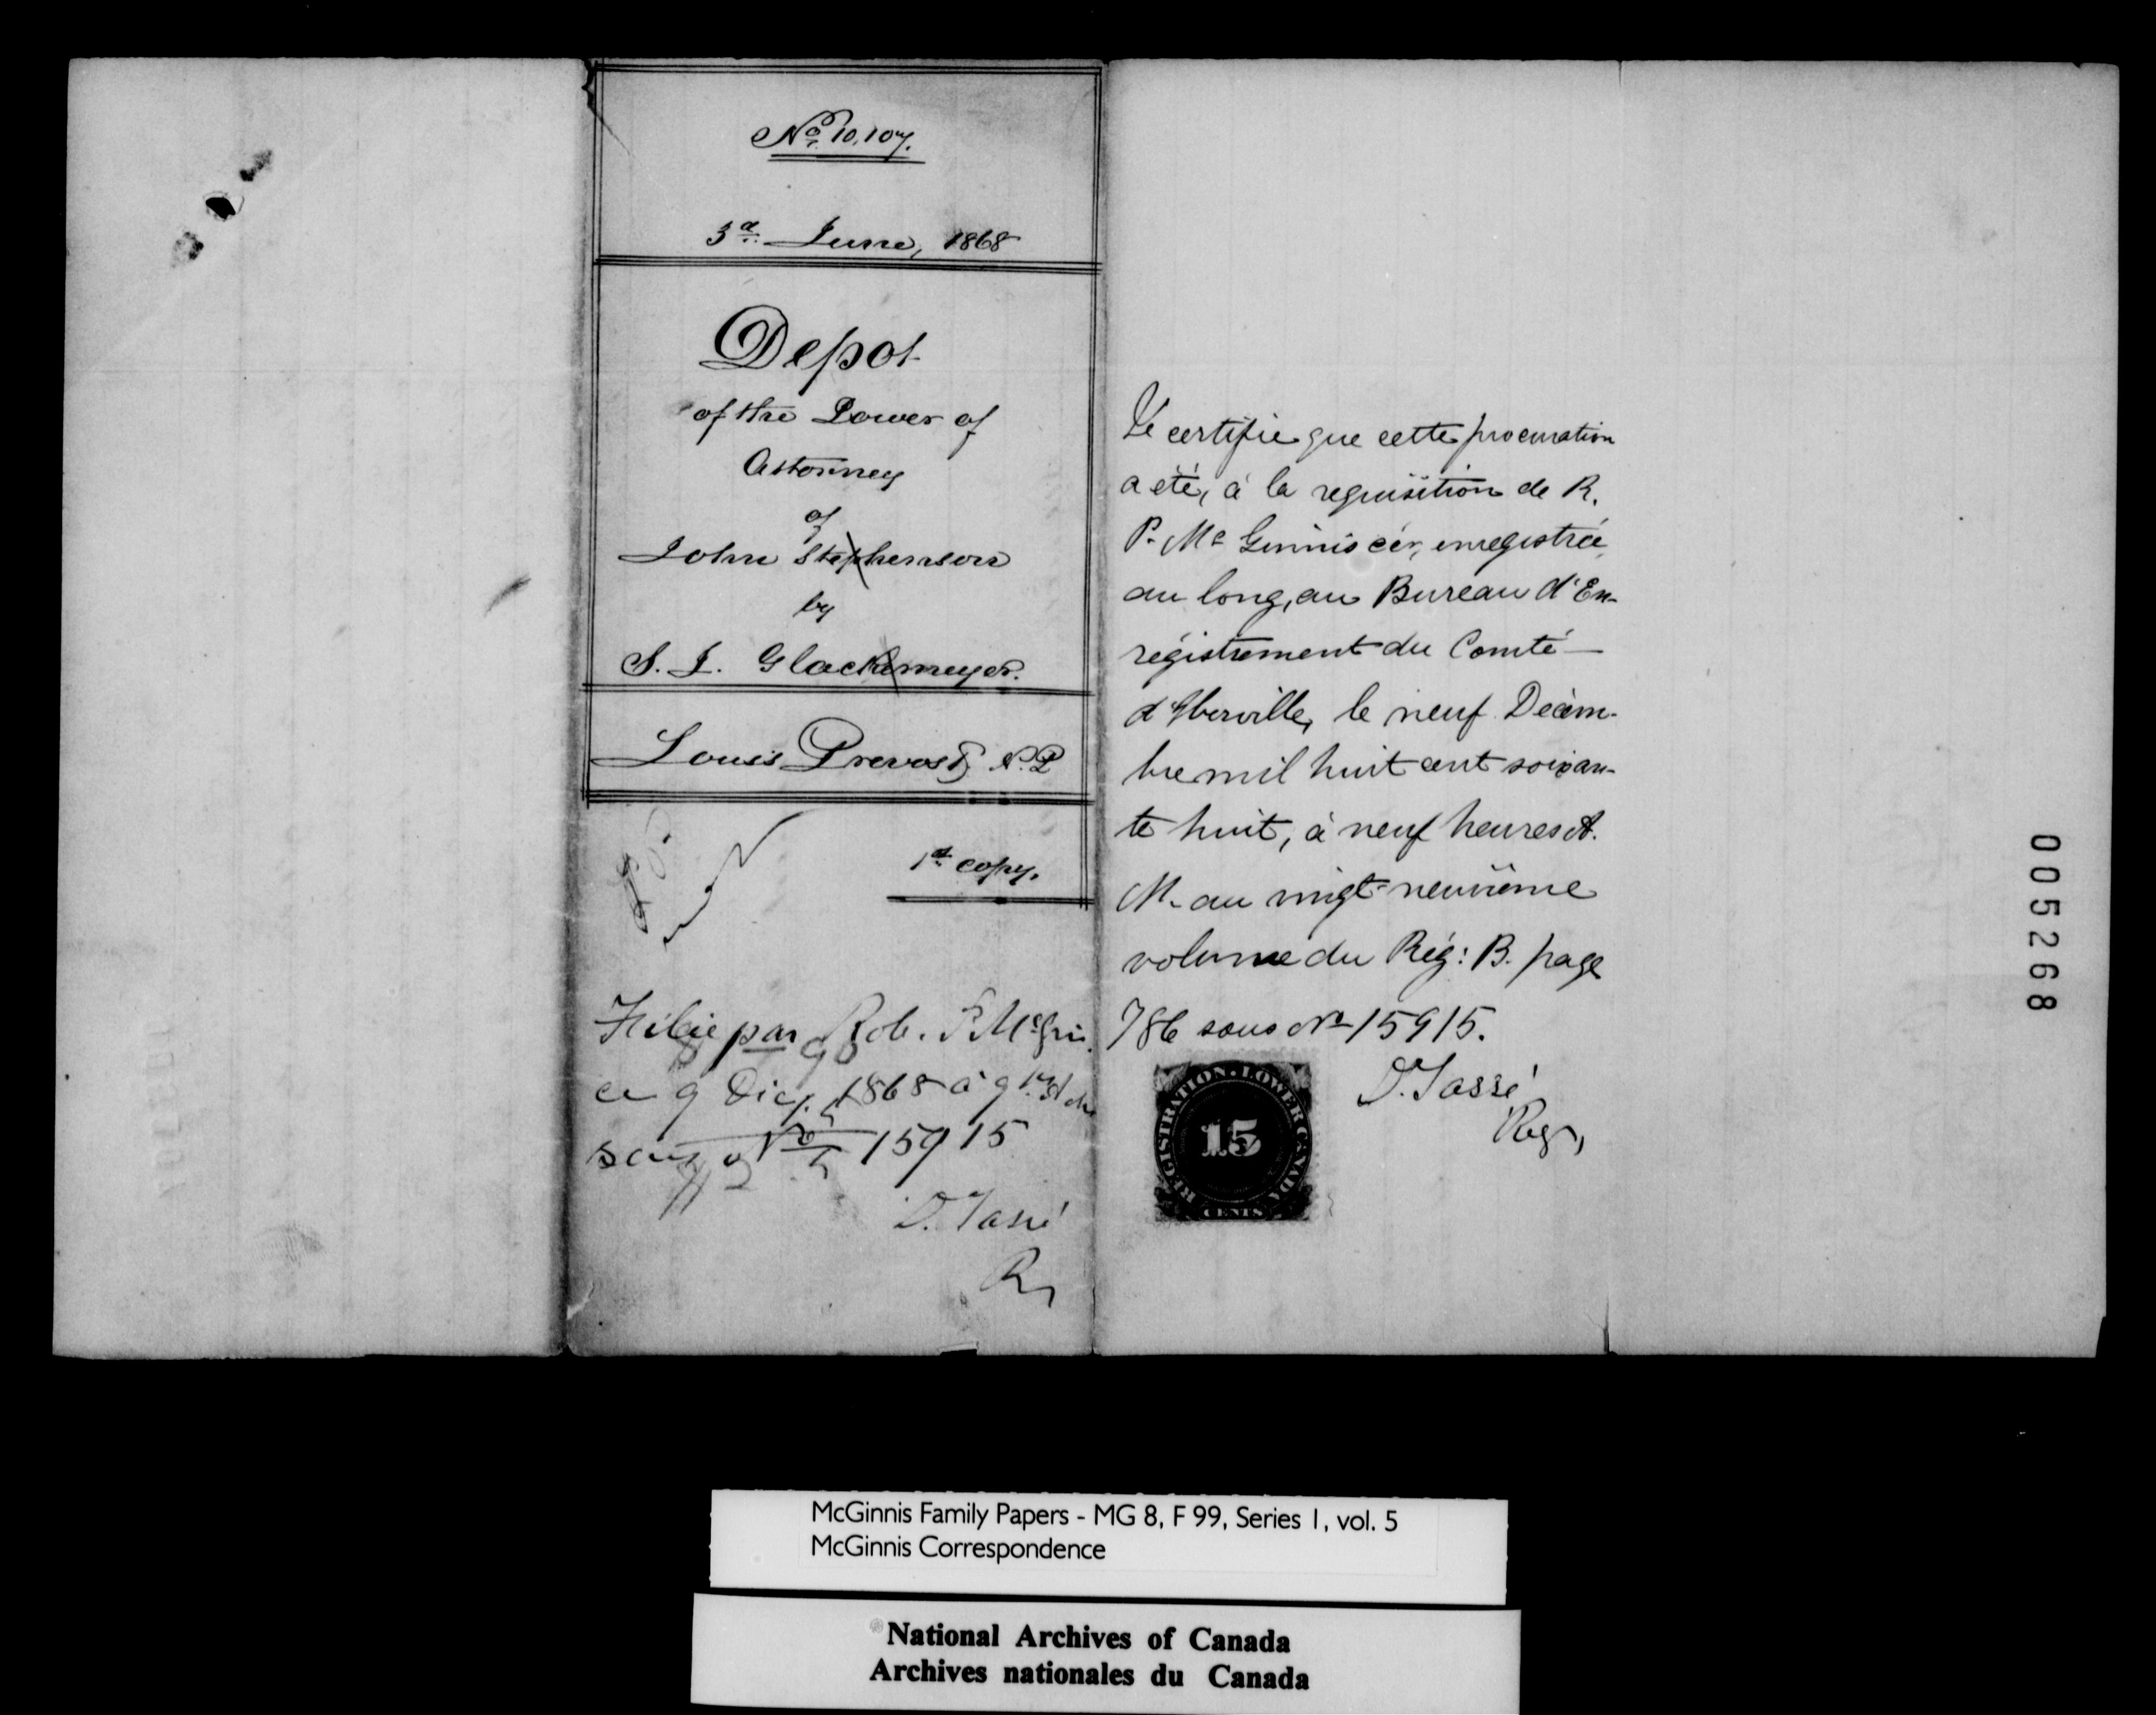 No 10,107.
3d June, 1868
Depot
of the Power of
Attorney
of
John Stephenson
by
S. J. Glackemeyer.
Louis Prevost, N.P.
1st copy.
Filée par Rob. P. McGin.
ce 9 Déc. 1868 à 9
sous No 15915
D. Tassé
R,
Je certifie que cette procuration
a été, à la requisition de R.
P. Mc Ginnis écr, enregistrée
au long, au Bureau d'En-
régistrement du Comté
d'Iberville, le neuf Décem-
bre mil huit cent soixan-
te huit, à neuf heures A.
M. au vingt-neuvième
volume du Rég: B. page
786 sous No 15915.
D. Tassé
Regr,
REGISTRATION · LOWER CANADA
15
CENTS
005268
McGinnis Family Papers - MG 8, F 99, Series 1, vol. 5
McGinnis Correspondence
National Archives of Canada
Archives nationales du Canada